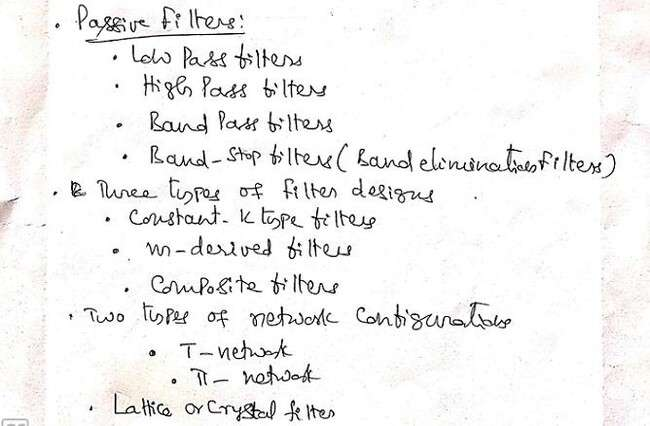 • Passive Filters:
• Low Pass filters
• High Pass filters
• Band Pass filters
• Band-Stop filters (Band elimination Filters)
• Three types of filter designs
• Constant-K type filters
• m-derived filters
• Composite filters
• Two types of network Configurations
• T-network
• π-network
• Lattice or Crystal filter